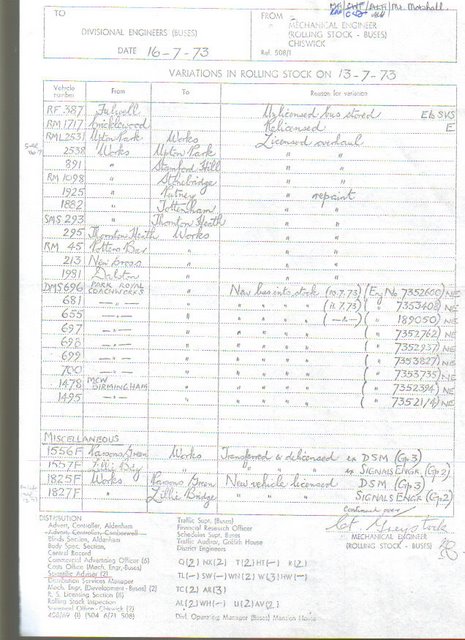 TO
DIVISIONAL ENGINEERS (BUSES)
DATE 16-7-73
FROM
MECHANICAL ENGINEER
(ROLLING STOCK - BUSES)
CHISWICK
Ref. 508/1
Mr. Marshall
VARIATIONS IN ROLLING STOCK ON 13-7-73
Vehicle number From To Reason for variation
RF 387 Fulwell Unlicensed bus stored Eb SVS
RM 1717 Cricklewood Relicensed E
RML 2531 Upton Park Works Licensed overhaul
2538 Works Upton Park " "
891 " Stamford Hill " "
RM 1098 " Stonebridge " "
1925 " Putney " repaint
1882 " Tottenham " "
SMS 293 " Thornton Heath " "
295 Thornton Heath Works " "
RM 45 Potters Bar " " "
213 New Cross " " "
1981 Dalston " " "
DMS 696 PARK ROYAL COACHWORKS " New bus into stock (10.7.73) (Eng No 7352600) NE
681 —"— " " " " " (11.7.73) ( " 7353408) NE
655 —"— " " " " " (—"—) ( " 189050) NE
697 —"— " " " " " ( " 7352762) NE
698 —"— " " " " " ( " 7352937) NE
699 —"— " " " " " ( " 7353827) NE
700 —"— " " " " " ( " 7353735) NE
1478 MCW BIRMINGHAM " " " " " ( " 7352394) NE
1495 —"— " " " " " ( " ) NE
MISCELLANEOUS
1556F Parsons Green Works Transferred & delicensed ex DSM (Gp.3)
1557F Lillie Bdg " " " ex SIGNALS ENGR. (Gp.2)
1825F Works Parsons Green New vehicle licensed DSM (Gp.3)
1827F " Lillie Bridge " " SIGNALS ENGR (Gp.2)
Continued over
MECHANICAL ENGINEER
(ROLLING STOCK - BUSES)
DISTRIBUTION
Admin. Controller, Aldenham
Admin. Controller, Camberwell
Blinds Section, Aldenham
Body Spec. Section,
Central Record
Commercial Advertising Officer (6)
Costs Office (Mech. Engr. Buses)
Scientific Adviser (2)
Distribution Services Manager
Mech. Engr. (Development-Buses) (2)
R. S. Licensing Section (6)
Rolling Stock Inspection
Traffic Supt. (Buses)
Financial Research Officer
Schedules Supt. Buses
Traffic Auditor, Griffith House
District Engineers
Q(2) NX(2) T(2) HT(—) K(2)
TL(—) SW(—) WN(2) W(3) HW(—)
TC(2) AR(3)
AL(2) WH(—) U(2) AV(2)
Dist. Operating Manager (Buses) Mansion House